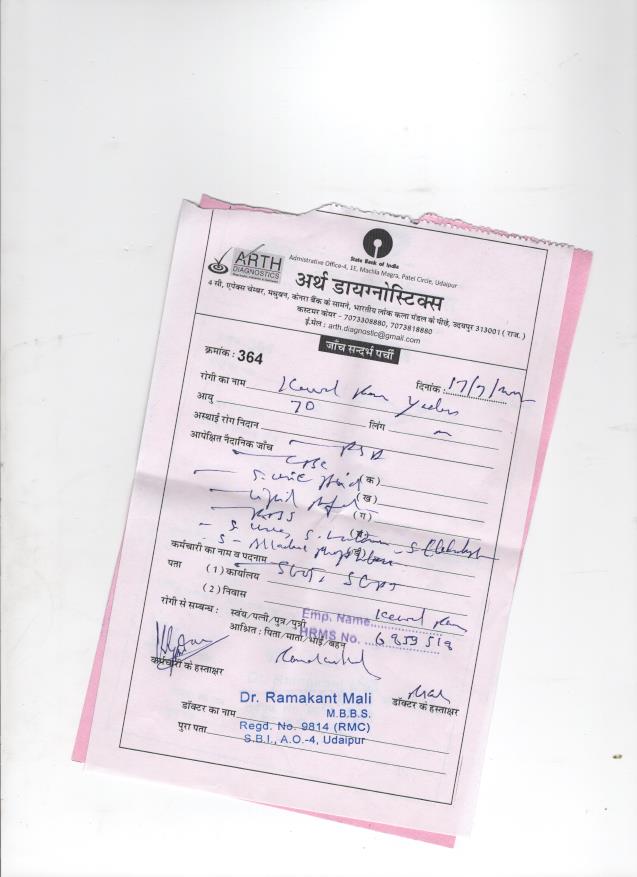 State Bank of India
ARTH
DIAGNOSTICS
Admistrative Office-4, 1E, Machla Magra, Patel Circle, Udaipur
अर्थ डायग्नोस्टिक्स
4 सी, एपेक्स चेम्बर, मधुबन, केनरा बैंक के सामने, भारतीय लोक कला मंडल के पीछे, उदयपुर 313001 ( राज. )
कस्टमर केयर - 7073308880, 7073818880
ई.मेल : arth.diagnostic@gmail.com
जाँच सन्दर्भ पर्ची
क्रमांक : 364
दिनांक : 17/7/
रोगी का नाम Kewal Ram
आयु 70 लिंग m
अस्थाई रोग निदान
आपेक्षित नैदानिक जाँच
CBC
( क )
( ख )
( ग )
कर्मचारी का नाम व पदनाम
पता ( 1 ) कार्यालय SGOT, SGPT
( 2 ) निवास
रोगी से सम्बन्ध : स्वंय/पत्नी/पुत्र/पुत्री
आश्रित : पिता/माता/भाई/बहन
Emp. Name Kewal Ram
HRMS No. 6859518
कर्मचारी के हस्ताक्षर
डॉक्टर के हस्ताक्षर
Dr. Ramakant Mali
M.B.B.S.
डॉक्टर का नाम
Regd. No. 9814 (RMC)
पुरा पता
S.B.I., A.O.-4, Udaipur